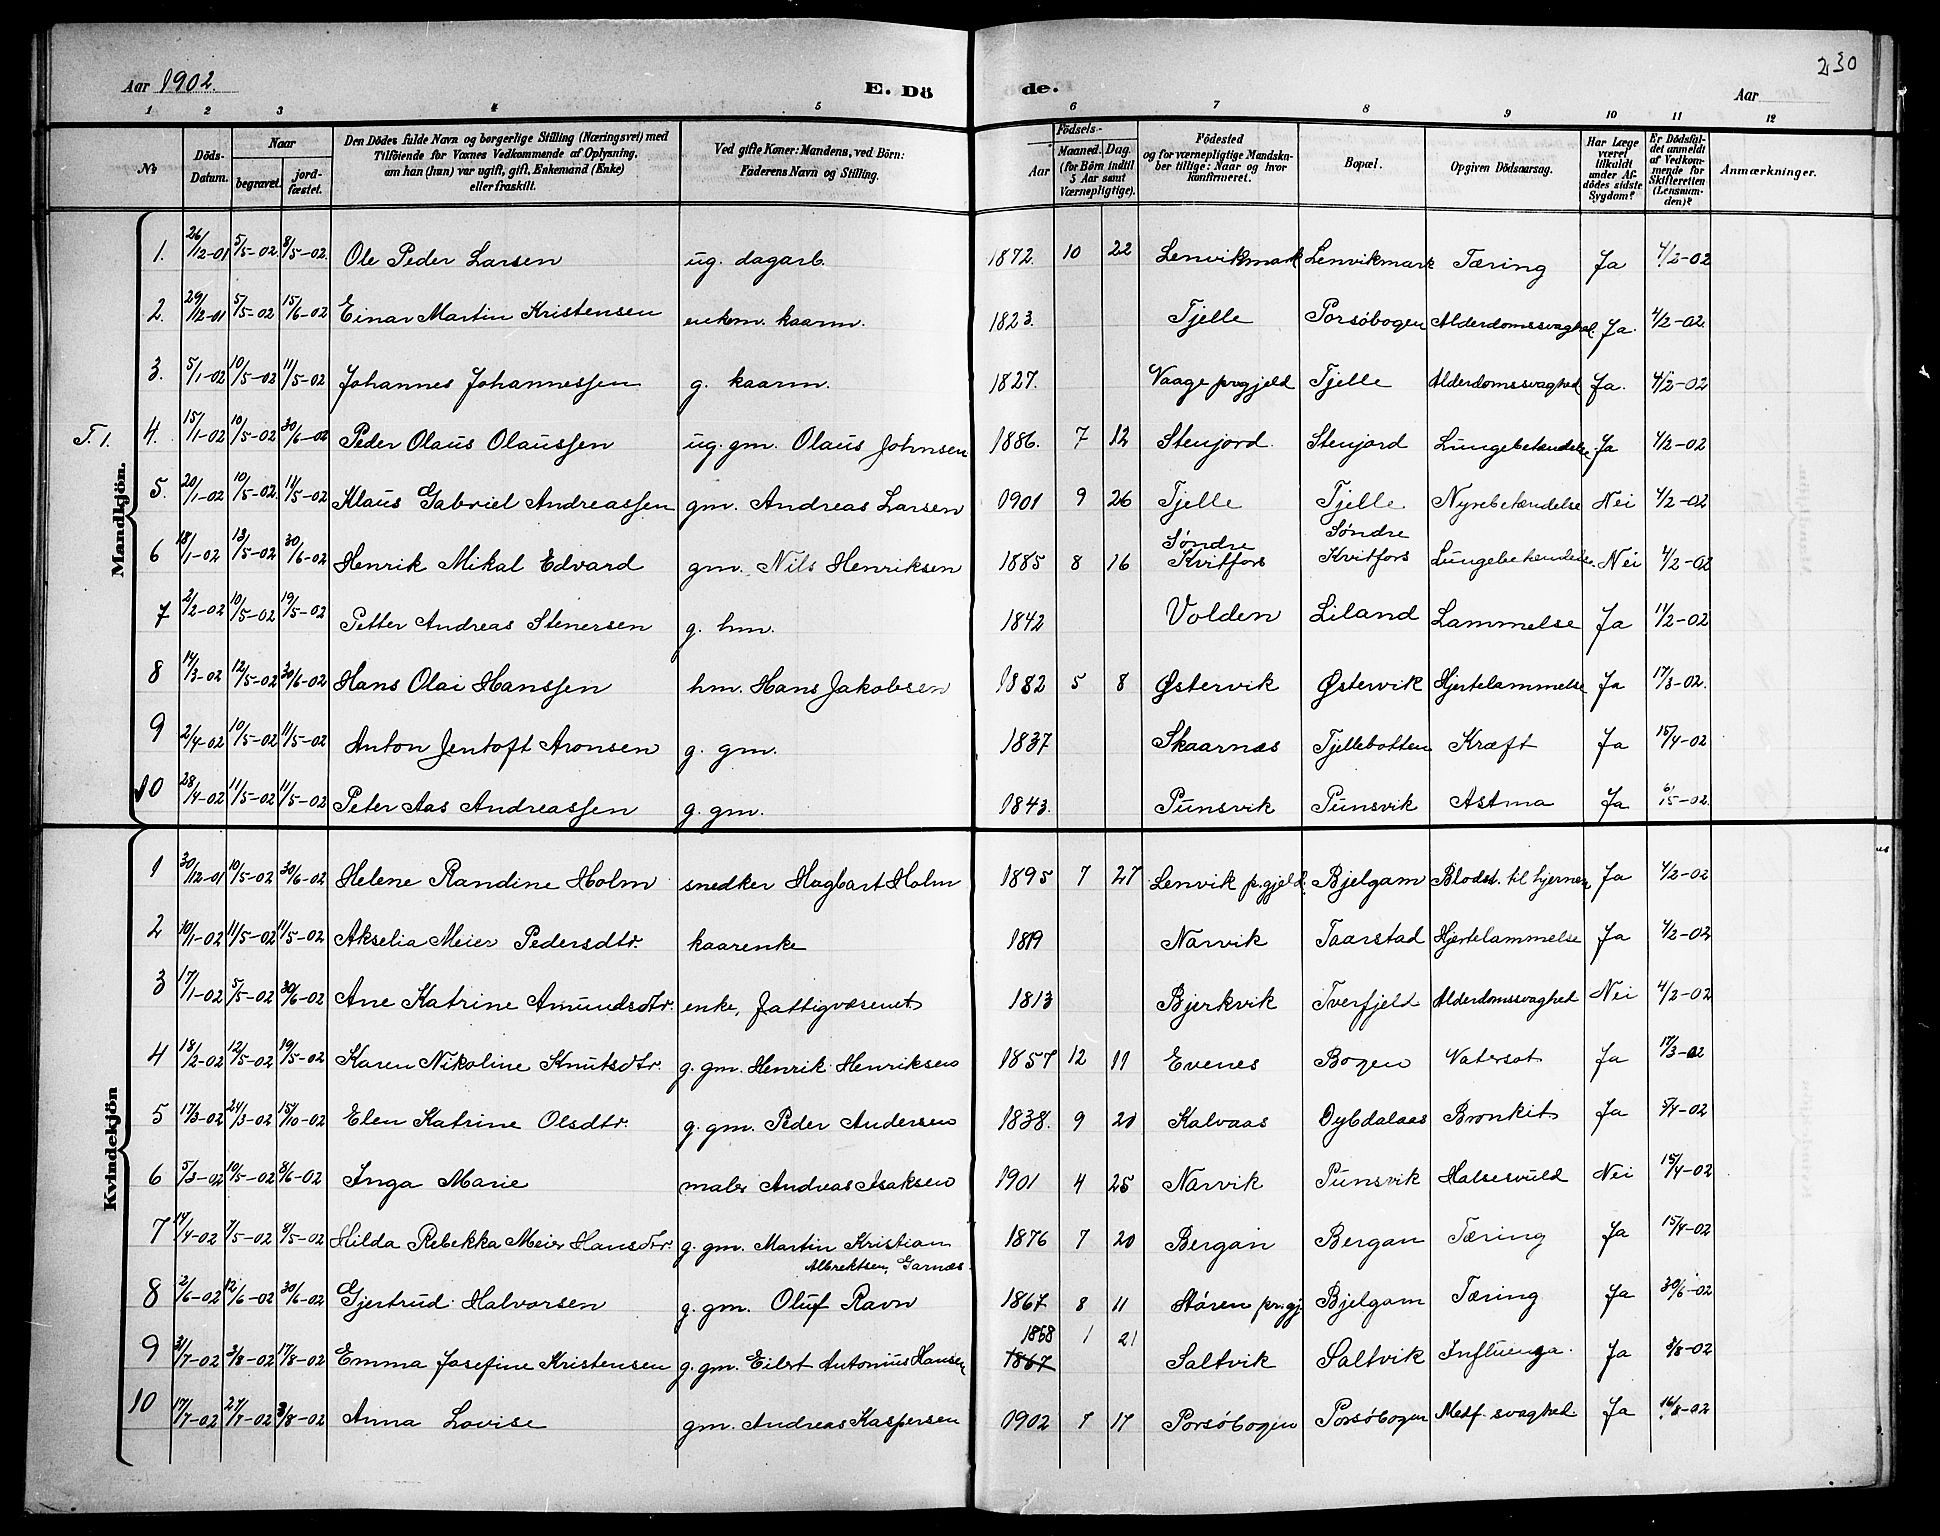 230
Aar 1902.
E. Dö de.
Aar
1 2 3 4 5 6 7 8 9 10 11 12
№
Döds-Datum.
Naar
begravet.
jord-fæstet.
Den Dödes fulde Navn og borgerlige Stilling (Næringsvei) med
Tilföiende for Voxnes Vedkommende af Oplysning,
om han (hun) var ugift, gift, Enkemand (Enke)
eller fraskilt.
Ved gifte Koner: Mandens, ved Börn:
Faderens Navn og Stilling.
Födsels-
Aar
Maaned. Dag.
(for Börn indtil
5 Aar samt
Værnepligtige).
Födested
og for værnepligtige Mandska-
ber tillige: Naar og hvor
konfirmeret.
Bopæl.
Opgiven Dödsaarsag.
Har Læge
været
tilkaldt
under Af-
dödes sidste
Sygdom?
Er Dödsfal-
det anmeldt
af Vedkom-
mende for
Skifteretten
(Lensman-
den)?
Anmærkninger.
Mandkjön.
1. 26/12-01 5/5-02 8/5-02. Ole Peder Larsen ug. dagarb. 1872. 10 22 Lenvikmark Lenvikmark Tæring Ja 4/2-02
2. 29/12-01 5/5-02 15/6-02 Einar Martin Kristensen enkem. kaarm. 1823. Tjelle Porsöbogen Alderdomssvaghed. Ja. 4/2-02.
3. 5/1-02 10/5-02 11/5-02 Johannes Johannessen g. kaarm. 1827. Vaage prgjeld Tjelle Alderdomssvaghed Ja. 4/2-02
T. 1. 4. 15/1-02 10/5-02 30/6-02 Peder Olaus Olaussen ug. gm. Olaus Johnsen 1886. 7 12 Stenjord. Stenjord Lungebetændelse. Ja 4/2-02
5. 20/1-02 10/5-02. 14/5-02 Klaus Gabriel Andreassen gm. Andreas Larsen 0901 9 26 Tjelle Tjelle Nyrebetændelse Nei 4/2-02
6 18/1-02 13/5-02 30/6-02 Henrik Mikal Edvard gm. Nils Henriksen 1885 8 16 Søndre Kvitfors Søndre Kvitfors Lungebetændelse. Nei 4/2-02
7 2/2-02 10/5-02 19/5-02 Petter Andreas Stenersen g. hm. 1842 Volden Liland Lammelse Ja 11/2-02
8 14/3-02 12/5-02 30/6-02 Hans Olai Hanssen hm. Hans Jakobsen 1882 5 8 Østervik Østervik Hjertelammelse Ja 17/3-02.
9 2/4-02 10/5-02 11/5-02 Anton Jentoft Aronsen g. gm. 1837 Skaarnæs Tjellebotten Kræft Ja 15/4-02
10 28/4-02 11/5-02 11/5-02 Peter Aas Andreassen g. gm. 1843. Punsvik Punsvik Astma Ja 6/5-02.
Kvindekjön
1 30/12-01 10/5-02 30/6-02 Helene Randine Holm snedker Hagbart Holm 1895 7 27 Lenvik p.gjeld. Bjelgam Blodst. til hjernen Ja 4/2-02
2 10/1-02 11/5-02 11/5-02 Akselia Meier Pedersdtr. kaarenke 1819 Narvik Taarstad Hjertelammelse Ja 4/2-02
3 17/1-02 5/5-02 30/6-02 Ane Katrine Amundsdtr. enke, fattigvæsenet 1813 Bjerkvik Tverfjeld Alderdomssvaghed Nei 4/2-02
4 18/2-02 12/5-02 19/5-02 Karen Nikoline Knutsdtr. g. gm. Henrik Henriksen 1857 12 11 Evenes Bogen Vatersot Ja 17/3-02
5 17/3-02 24/3-02 15/10-02 Elen Katrine Olsdtr. g. gm. Peder Andersen 1838. 9 20 Kalvaas Dybdalaas Bronkit Ja 5/4-02
6 5/3-02 10/5-02 8/6-02 Inga Marie maler Andreas Isaksen 1901 4 25 Narvik Punsvik Halsesvuld Nei 15/4-02
7 14/4-02 7/5-02 8/5-02 Hilda Rebekka Meier Hansdtr. g. gm. Martin Kristian Albrektsen, Garnæs. 1876 7 20 Bergan Bergan Tæring Ja 15/4-02
8 2/6-02 12/6-02 30/6-02 Gjertrud Halvorsen g. gm. Oluf Ravn 1867 8 11 Støren pr.gj. Bjelgam Tæring Ja 30/6-02
9 31/7-02 3/8-02 17/8-02 Emma Josefine Kristensen g. gm. Eilert Antonius Hansen 1868 1867 1 21 Saltvik Saltvik Influenza. Ja 5/8-02
10 17/7-02 27/7-02 3/8-02 Anna Lovise gm. Andreas Kaspersen 0902 7 17 Porsöbogen Porsöbogen Medf. svaghed. Ja 16/8-02